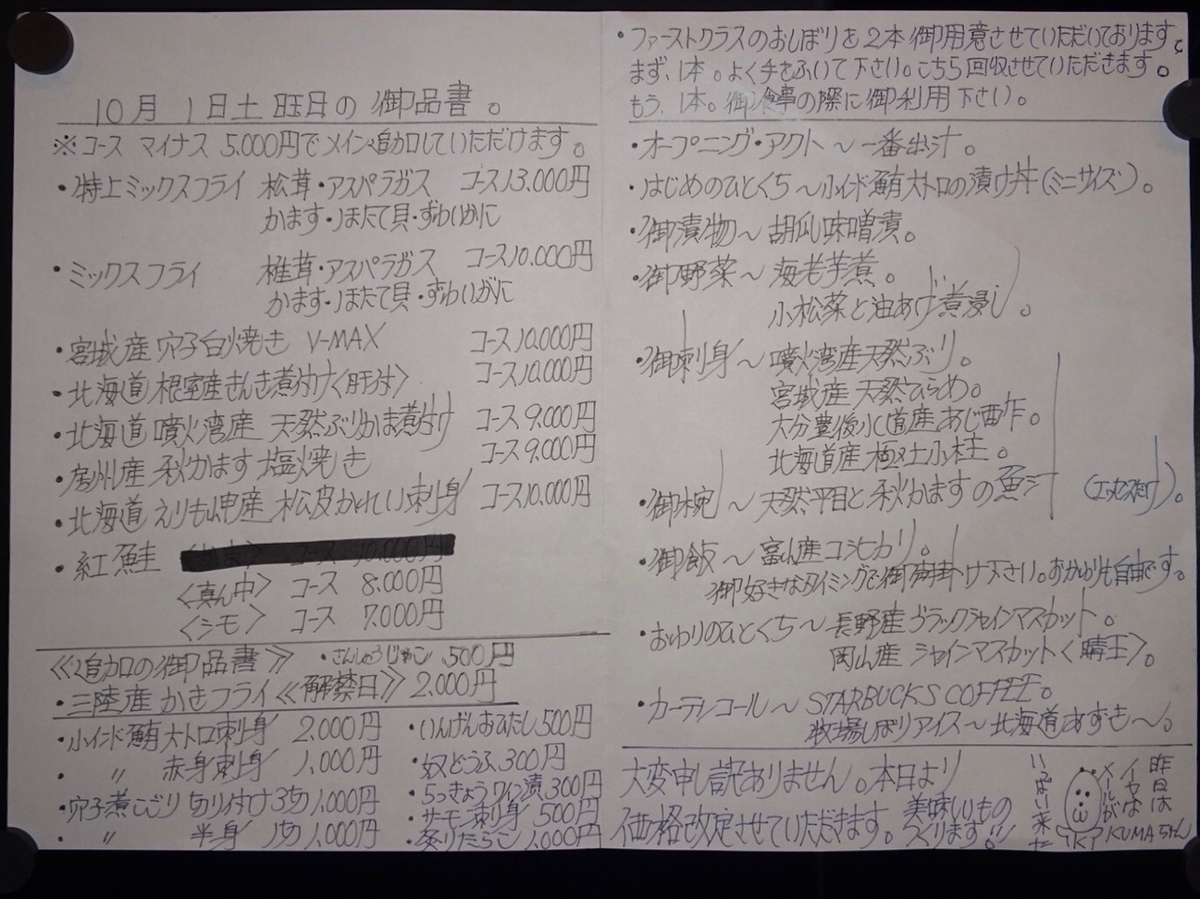 10月 1日土曜日の 御品書。
※コース マイナス 5.000円でメイン追加していただけます。
・特上ミックスフライ 松茸・アスパラガス コース13.000円
かます・ほたて貝・ずわいがに
・ミックスフライ 椎茸・アスパラガス コース10.000円
かます・ほたて貝・ずわいがに
・宮城産 穴子白焼き V-MAX コース10.000円
・北海道 根室産きんき煮付け〈肝付〉 コース10.000円
・北海道 噴火湾産 天然ぶりかま煮付け コース9.000円
・房州産 秋かます塩焼き コース9.000円
・北海道 えりも岬産 松皮かれい刺身 コース10.000円
・紅鮭
〈真ん中〉 コース 8.000円
〈シモ〉 コース 7.000円
《追加の御品書》 ・さんしょうじゃこ 500円
・三陸産 かきフライ《解禁日》 2.000円
・小インド鮪大トロ刺身 2.000円
・ 〃 赤身刺身 1.000円
・穴子煮こごり 切り付け3切 1.000円
・ 〃 半身 1切 1.000円
・いんげんおひたし 500円
・奴どうふ 300円
・らっきょうワイン漬 300円
・サーモン刺身 500円
・炙りたらこ 1.000円
・ファーストクラスのおしぼりを2本御用意させていただいております。
まず、1本。よく手をふいて下さい。こちら回収させていただきます。
もう、1本。御食事の際に御利用下さい。
・オープニング・アクト〜一番出汁。
・はじめのひとくち〜小インド鮪大トロの漬け丼(ミニサイズ)。
・御漬物〜胡瓜味噌漬。
・御野菜〜海老芋煮。
小松菜と油あげ煮浸し。
・御刺身〜噴火湾産天然ぶり。
宮城産 天然ひらめ。
大分豊後水道産あじ酢〆。
北海道産 極上小柱。
・御椀〜天然平目と秋かますの魚汁
・御飯〜富山産コシヒカリ。
御好きなタイミングで御声掛け下さい。おかわりも自由です。
・おわりのひとくち〜長野産ブラックシャインマスカット。
岡山産 シャインマスカット〈晴王〉。
・カーテンコール〜STARBUCKS COFFEE。
牧場しぼりアイス〜北海道あずき〜。
大変申し訳ありません。本日より
価格改定させていただきます。美味しいもの
つくります!!
昨日は
KUMAちゃん
イヤは
メールが
いっぱい来た